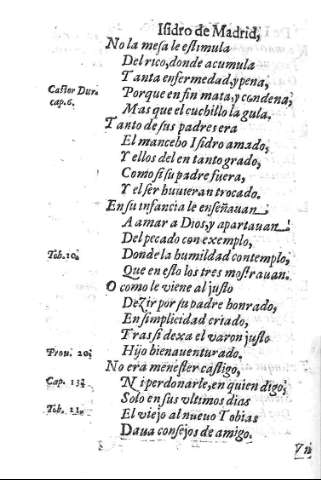 Isidro de Madrid,
No la mesa le estimula
Del rico, donde acumula
Tanta enfermedad, y pena,
Castor Dur. Porque en fin mata, y condena,
cap. 6. Mas que el cuchillo la gula.
Tanto de sus padres era
El mancebo Isidro amado,
Y ellos del en tanto grado,
Como si su padre fuera,
Y el ser huuieran trocado.
En su infancia le enseñauan
A amar a Dios, y apartauan
Del pecado con exemplo,
Tob. 10. Donde la humildad contemplo,
Que en esto los tres mostrauan.
O como le viene al justo
Dezir por su padre honrado,
En simplicidad criado,
Tras si dexa el varon justo
Prou. 20. Hijo bienauenturado.
No era menester castigo,
Cap. 13. Ni perdonarle, en quien digo,
Solo en sus vltimos dias
Tob. El viejo al nueuo Tobias
Daua consejos de amigo.
Vn